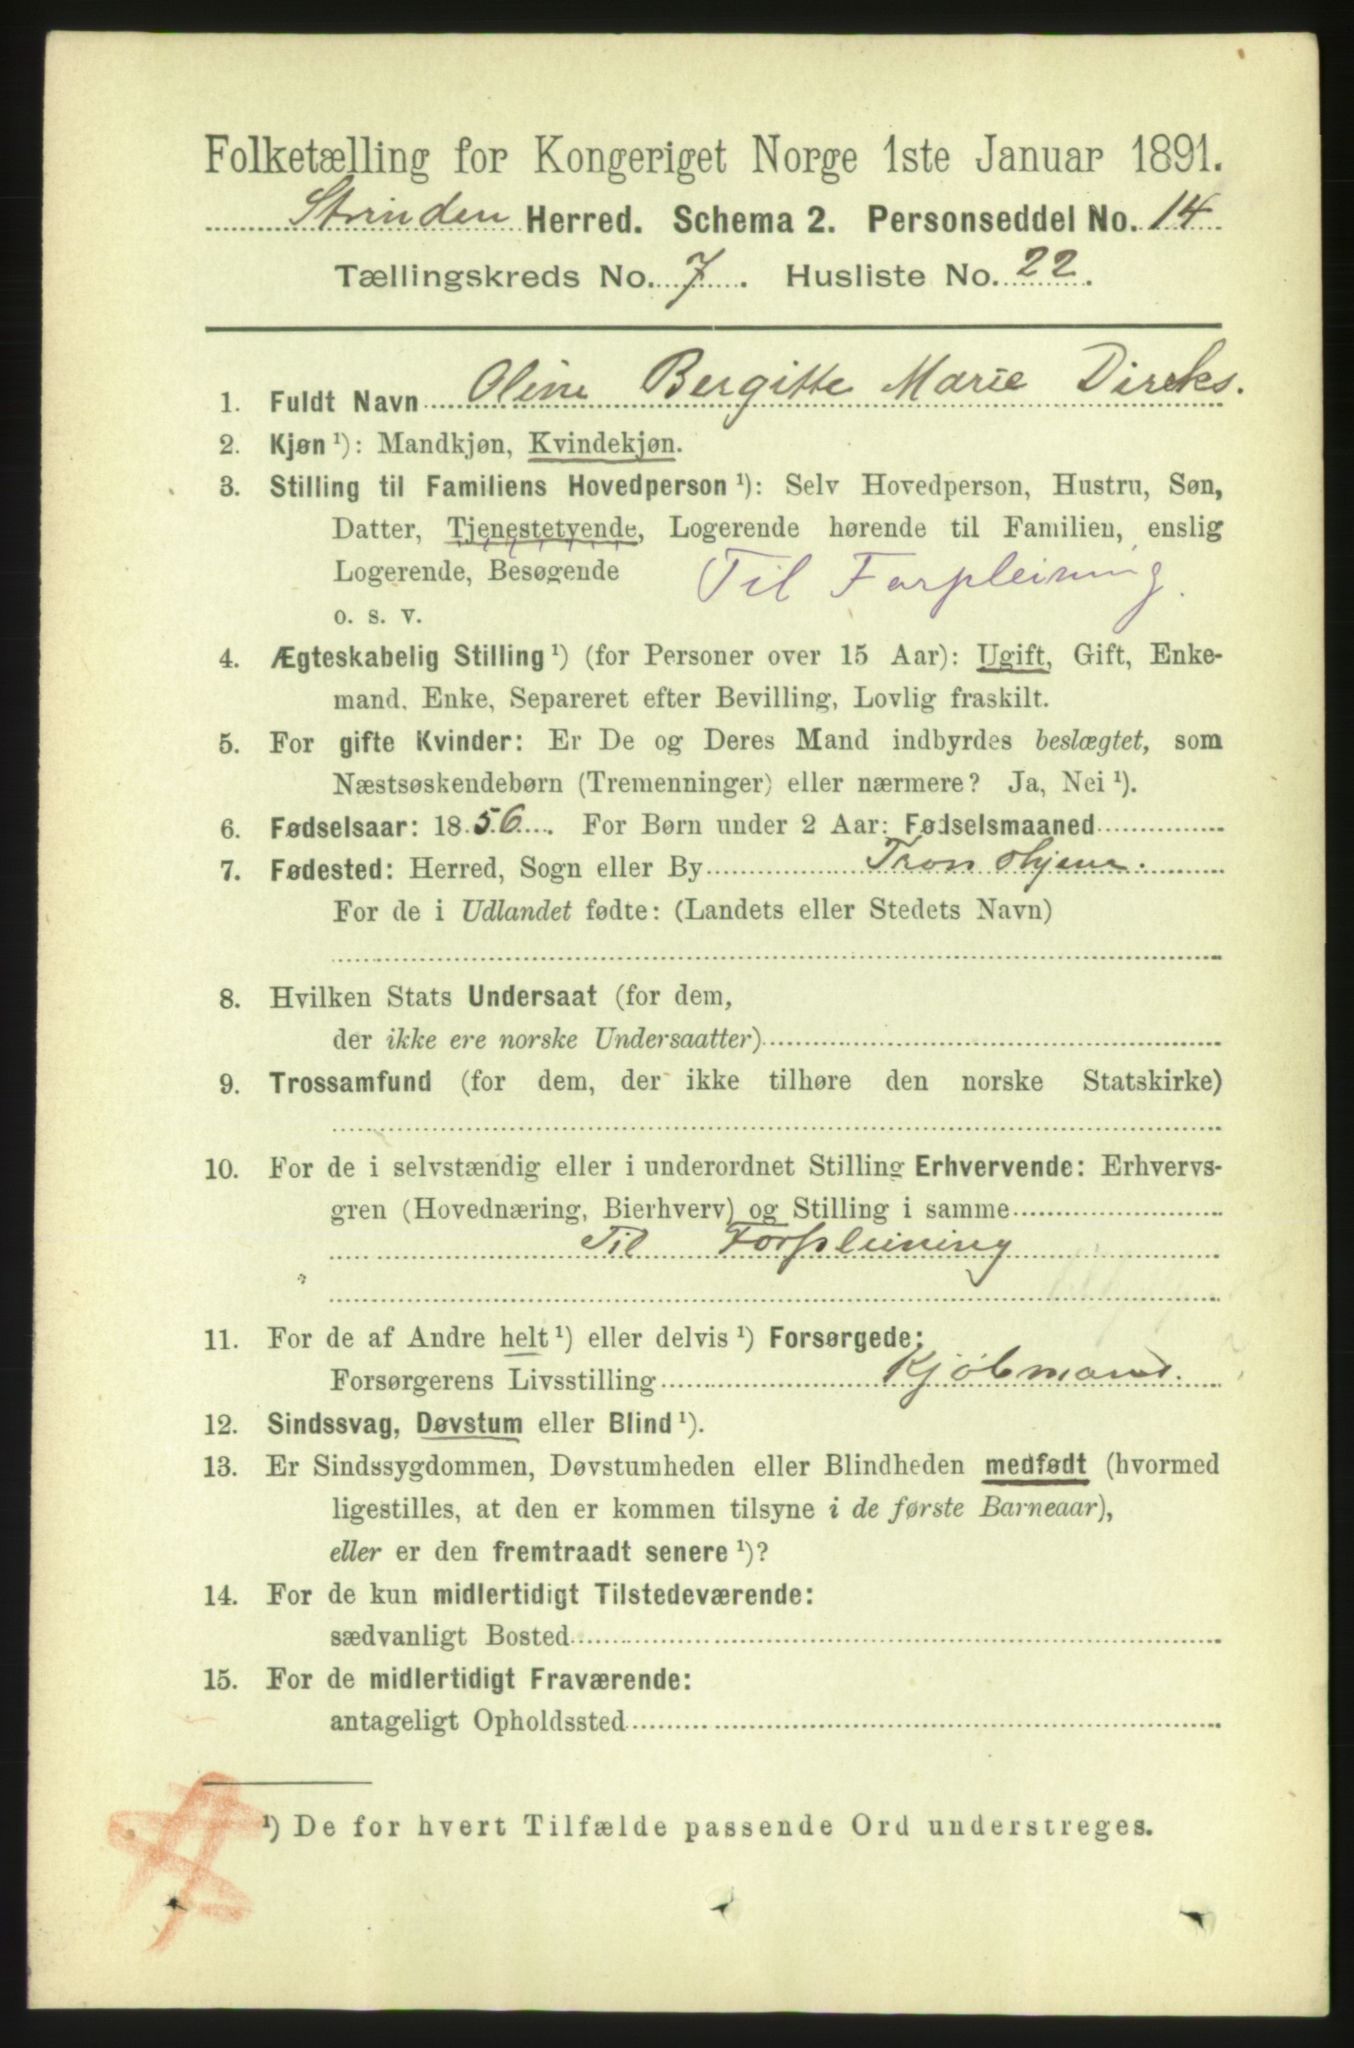 Folketælling for Kongeriget Norge 1ste Januar 1891.
Strinden Herred. Schema 2. Personseddel No. 14
Tællingskreds No. 7. Husliste No. 22.
1. Fuldt Navn Oline Bergitte Marie Direks.
2. Kjøn ¹): Mandkjøn, Kvindekjøn.
3. Stilling til Familiens Hovedperson ¹): Selv Hovedperson, Hustru, Søn,
Datter, Tjenestetyende, Logerende hørende til Familien, enslig
Logerende, Besøgende Til Forpleining.
o. s. v.
4. Ægteskabelig Stilling ¹) (for Personer over 15 Aar): Ugift, Gift, Enke-
mand, Enke, Separeret efter Bevilling, Lovlig fraskilt.
5. For gifte Kvinder: Er De og Deres Mand indbyrdes beslægtet, som
Næstsøskendebørn (Tremenninger) eller nærmere? Ja, Nei ¹).
6. Fødselsaar: 1856. For Børn under 2 Aar: Fødselsmaaned
7. Fødested: Herred, Sogn eller By Tronthjem.
For de i Udlandet fødte: (Landets eller Stedets Navn)
8. Hvilken Stats Undersaat (for dem,
der ikke ere norske Undersaatter)
9. Trossamfund (for dem, der ikke tilhøre den norske Statskirke)
10. For de i selvstændig eller i underordnet Stilling Erhvervende: Erhvervs-
gren (Hovednæring, Bierhverv) og Stilling i samme
Til Forpleining
11. For de af Andre helt ¹) eller delvis ¹) Forsørgede:
Forsørgerens Livsstilling Kjøbmand.
12. Sindssvag, Døvstum eller Blind ¹).
13. Er Sindssygdommen, Døvstumheden eller Blindheden medfødt (hvormed
ligestilles, at den er kommen tilsyne i de første Barneaar),
eller er den fremtraadt senere ¹)?
14. For de kun midlertidigt Tilstedeværende:
sædvanligt Bosted
15. For de midlertidigt Fraværende:
antageligt Opholdssted
¹) De for hvert Tilfælde passende Ord understreges.